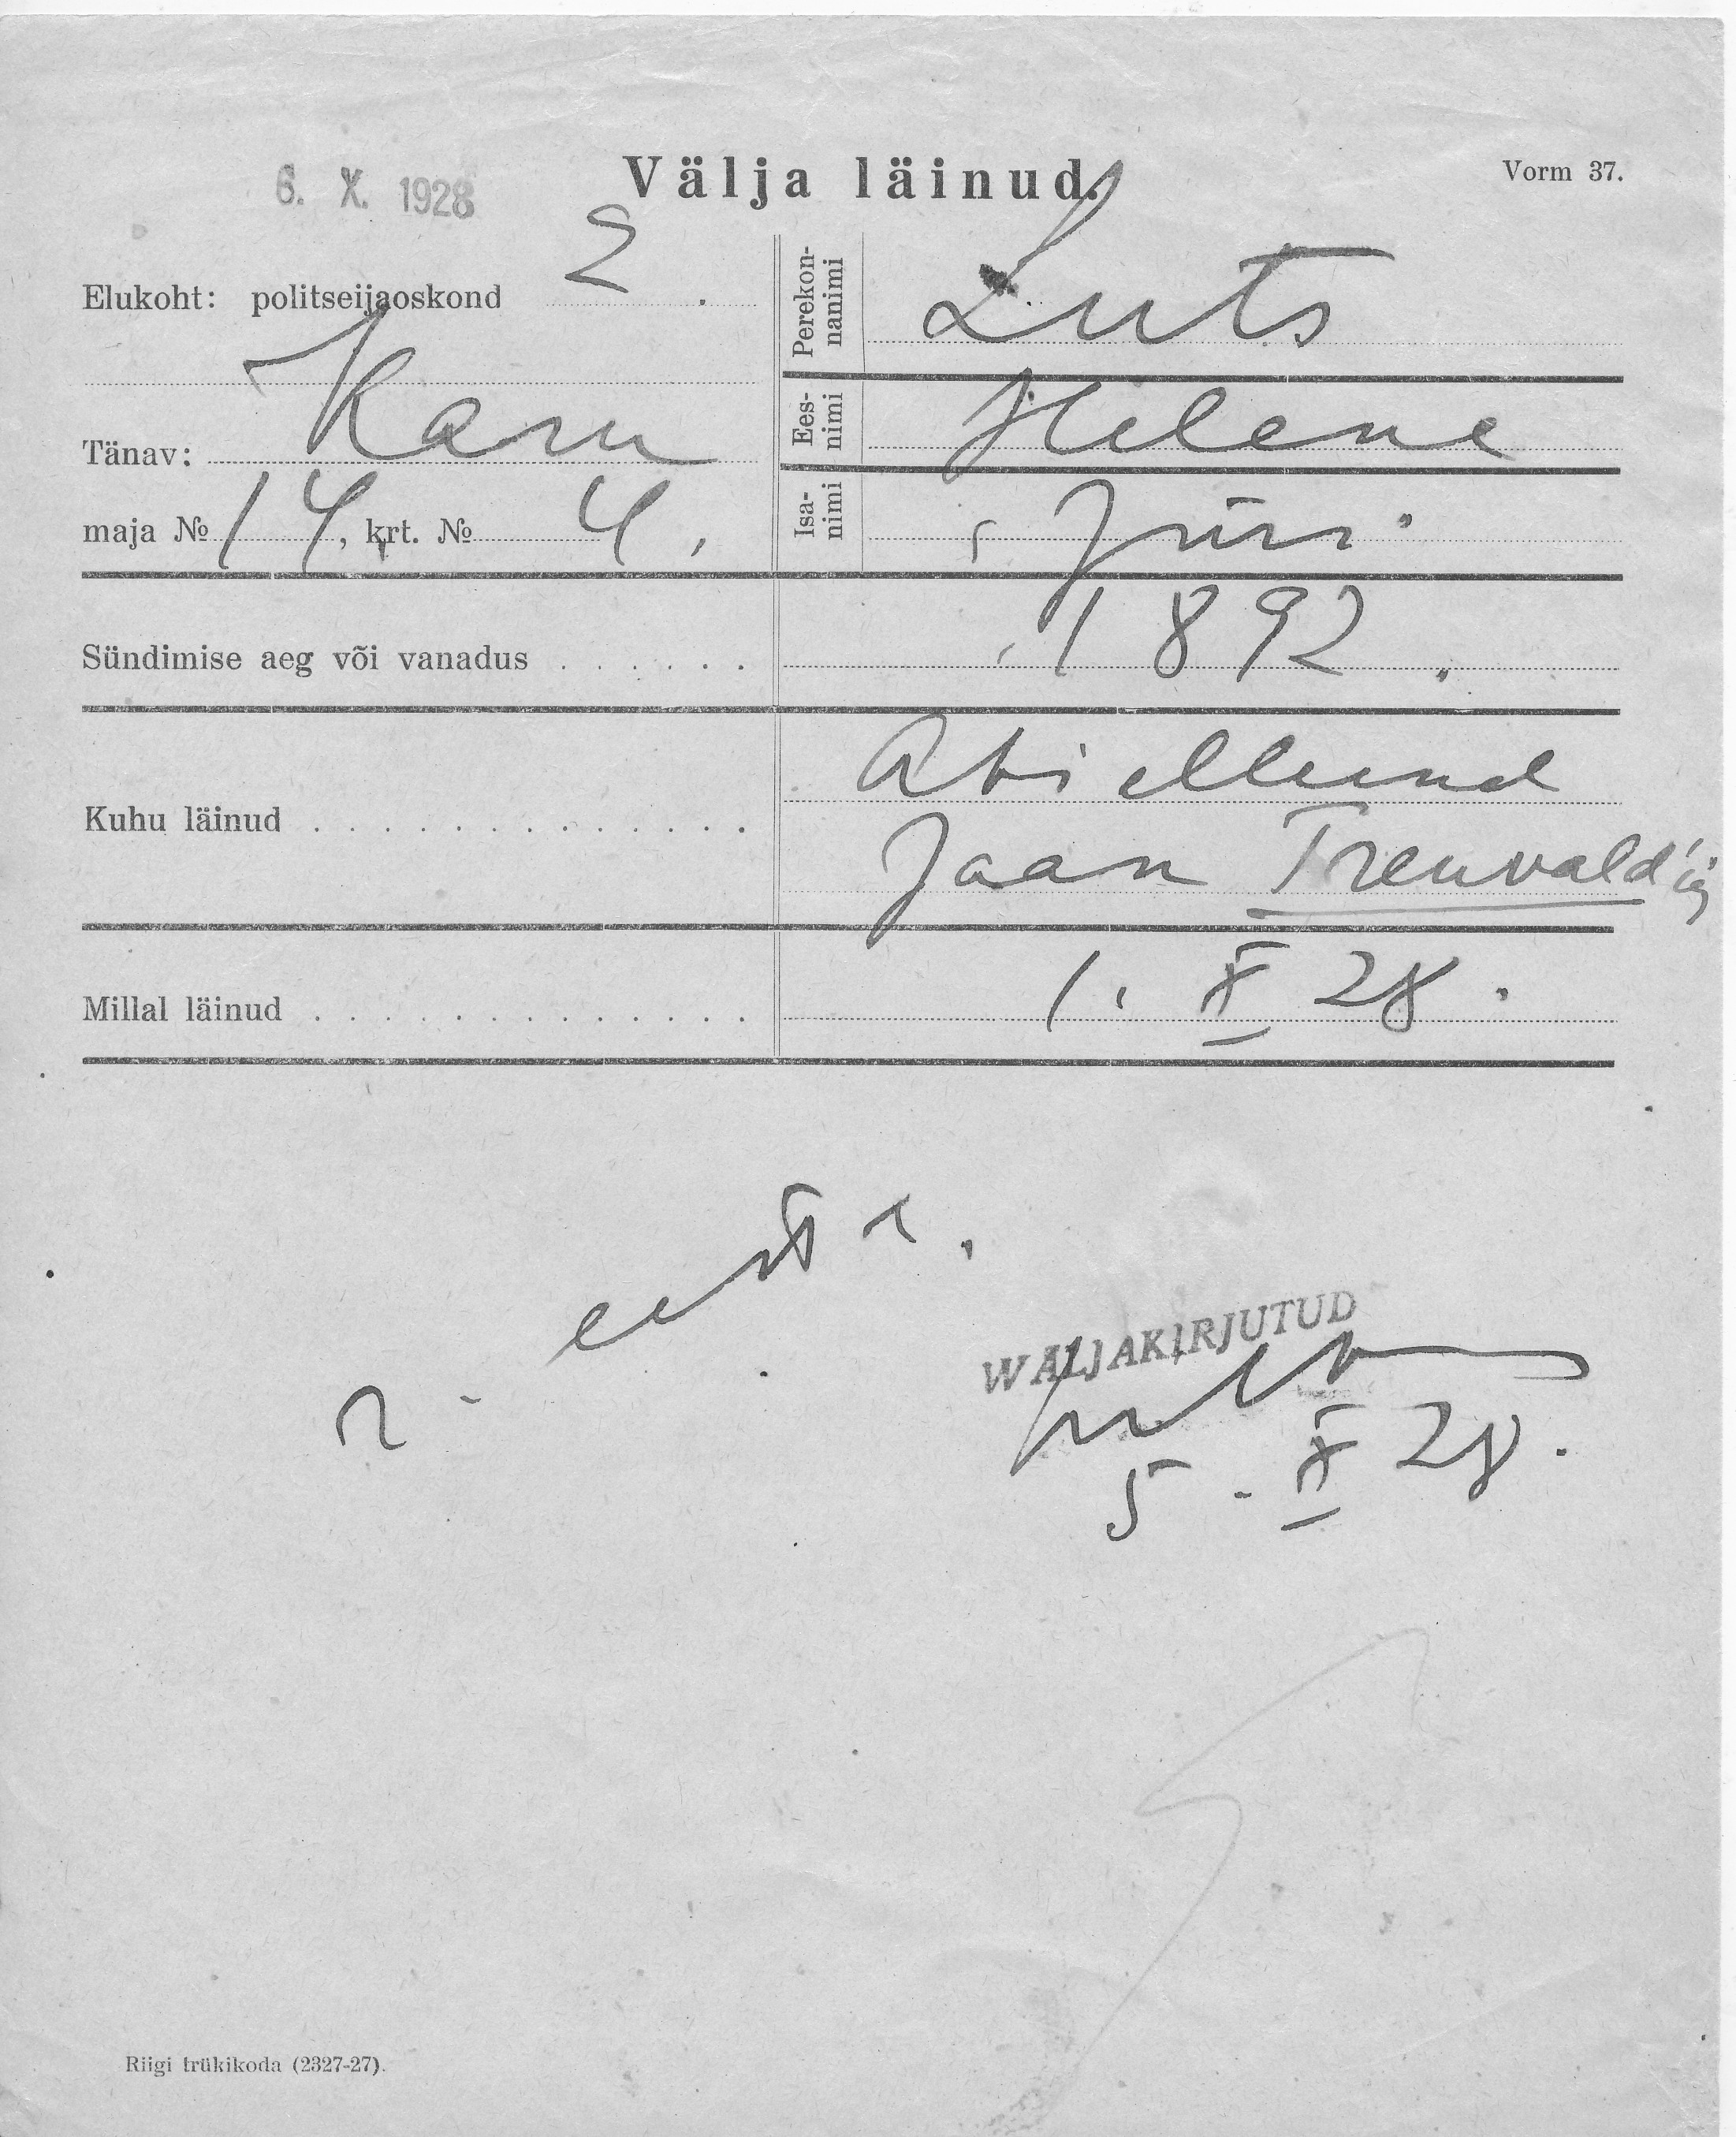 6. X. 1928
Välja läinud.
Vorm 37.
Elukoht: politseijaoskond 2.
Tänav: Karu
maja № 14, krt. № 4.
Perekon-
nanimi
Luts
Ees-
nimi
Helene
Isa-
nimi
Jüri.
Sündimise aeg või vanadus . . . . . . 1892.
Kuhu läinud . . . . . . . . . . . . . Abiellund
Jaan Treuvald'ig
Millal läinud . . . . . . . . . . . . . 1. X 28.
WÄLJAKIRJUTUD
5. X 28.
Riigi trükikoda (2327-27).